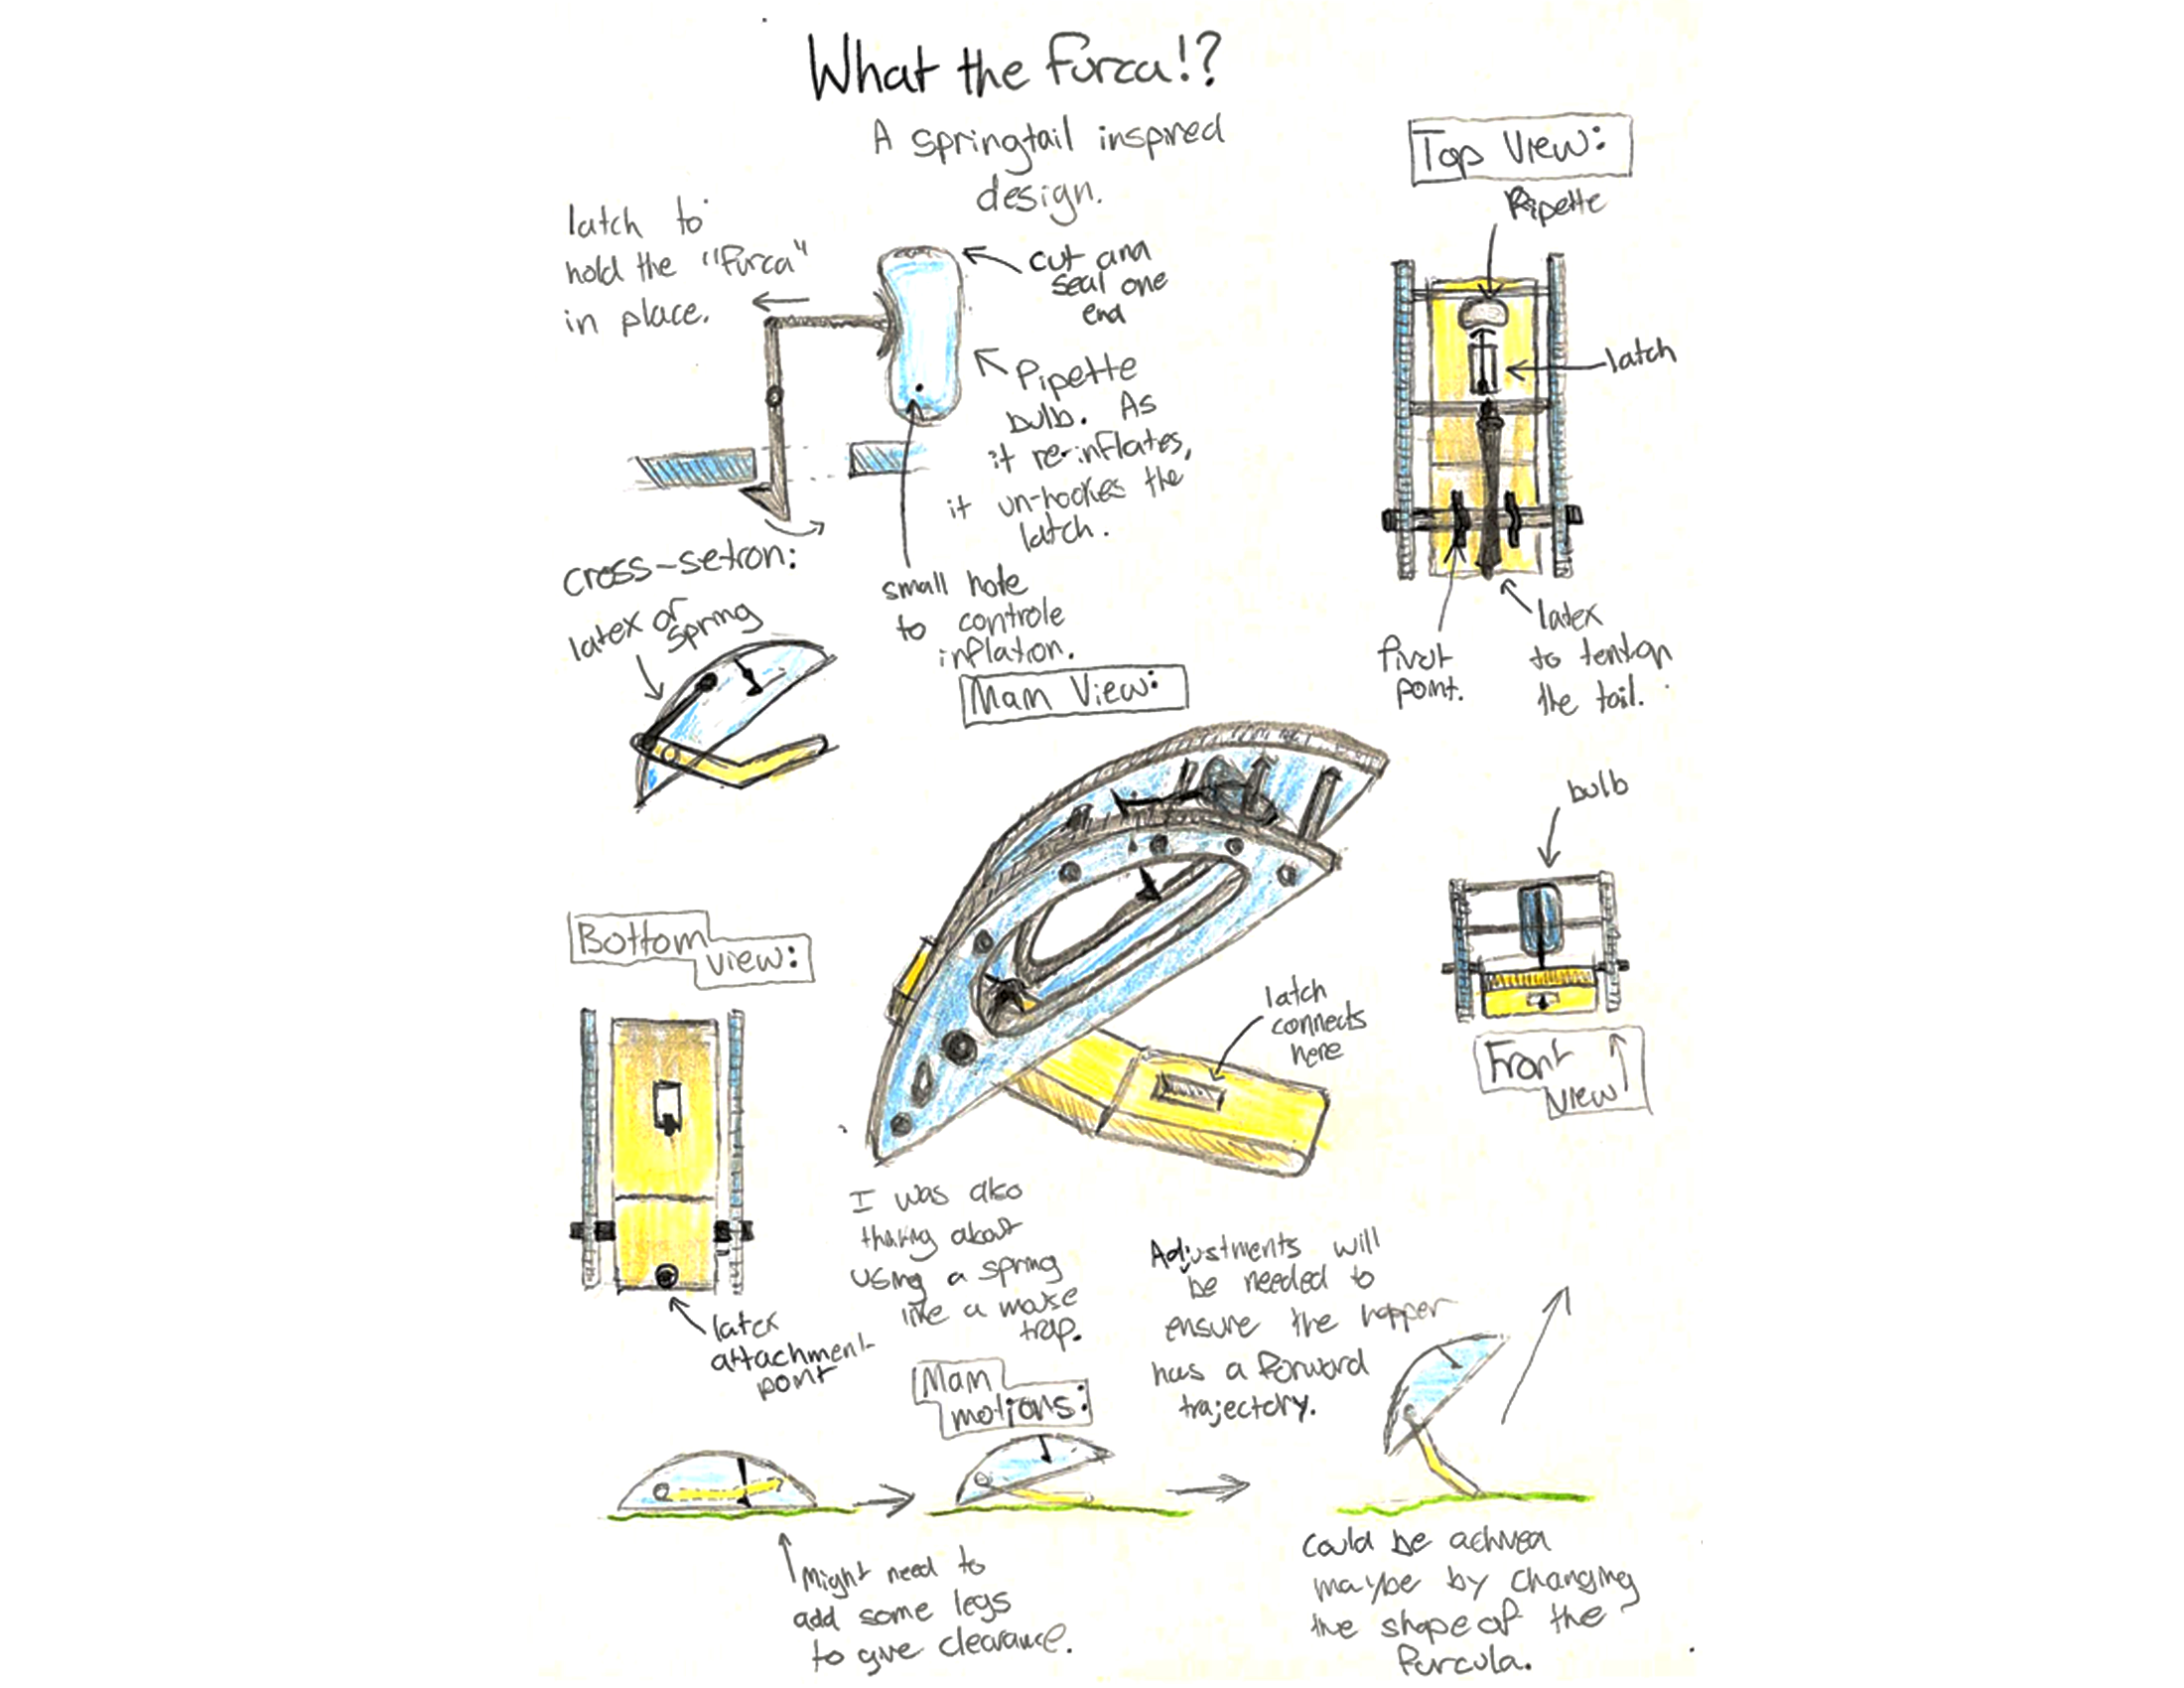 What the furca!?
A springtail inspired
design.
latch to
hold the "furca"
in place.
cut and
seal one
end
Pipette
bulb. As
it re-inflates,
it un-hookes the
latch.
small hole
to controle
inflation.
Top View:
Pipette
latch
Pivot
point.
latex
to tention
the tail.
cross-section:
latex or
spring
Main View:
latch
connects
here
bulb
Front
view
Bottom
view:
latex
attachment
point
I was also
using a spring
like a mouse
trap.
Adjustments will
be needed to
ensure the hopper
has a forward
trajectory.
Main
motions:
Might need to
add some legs
to give clearance.
could be
maybe by changing
the shape of the
furcula.